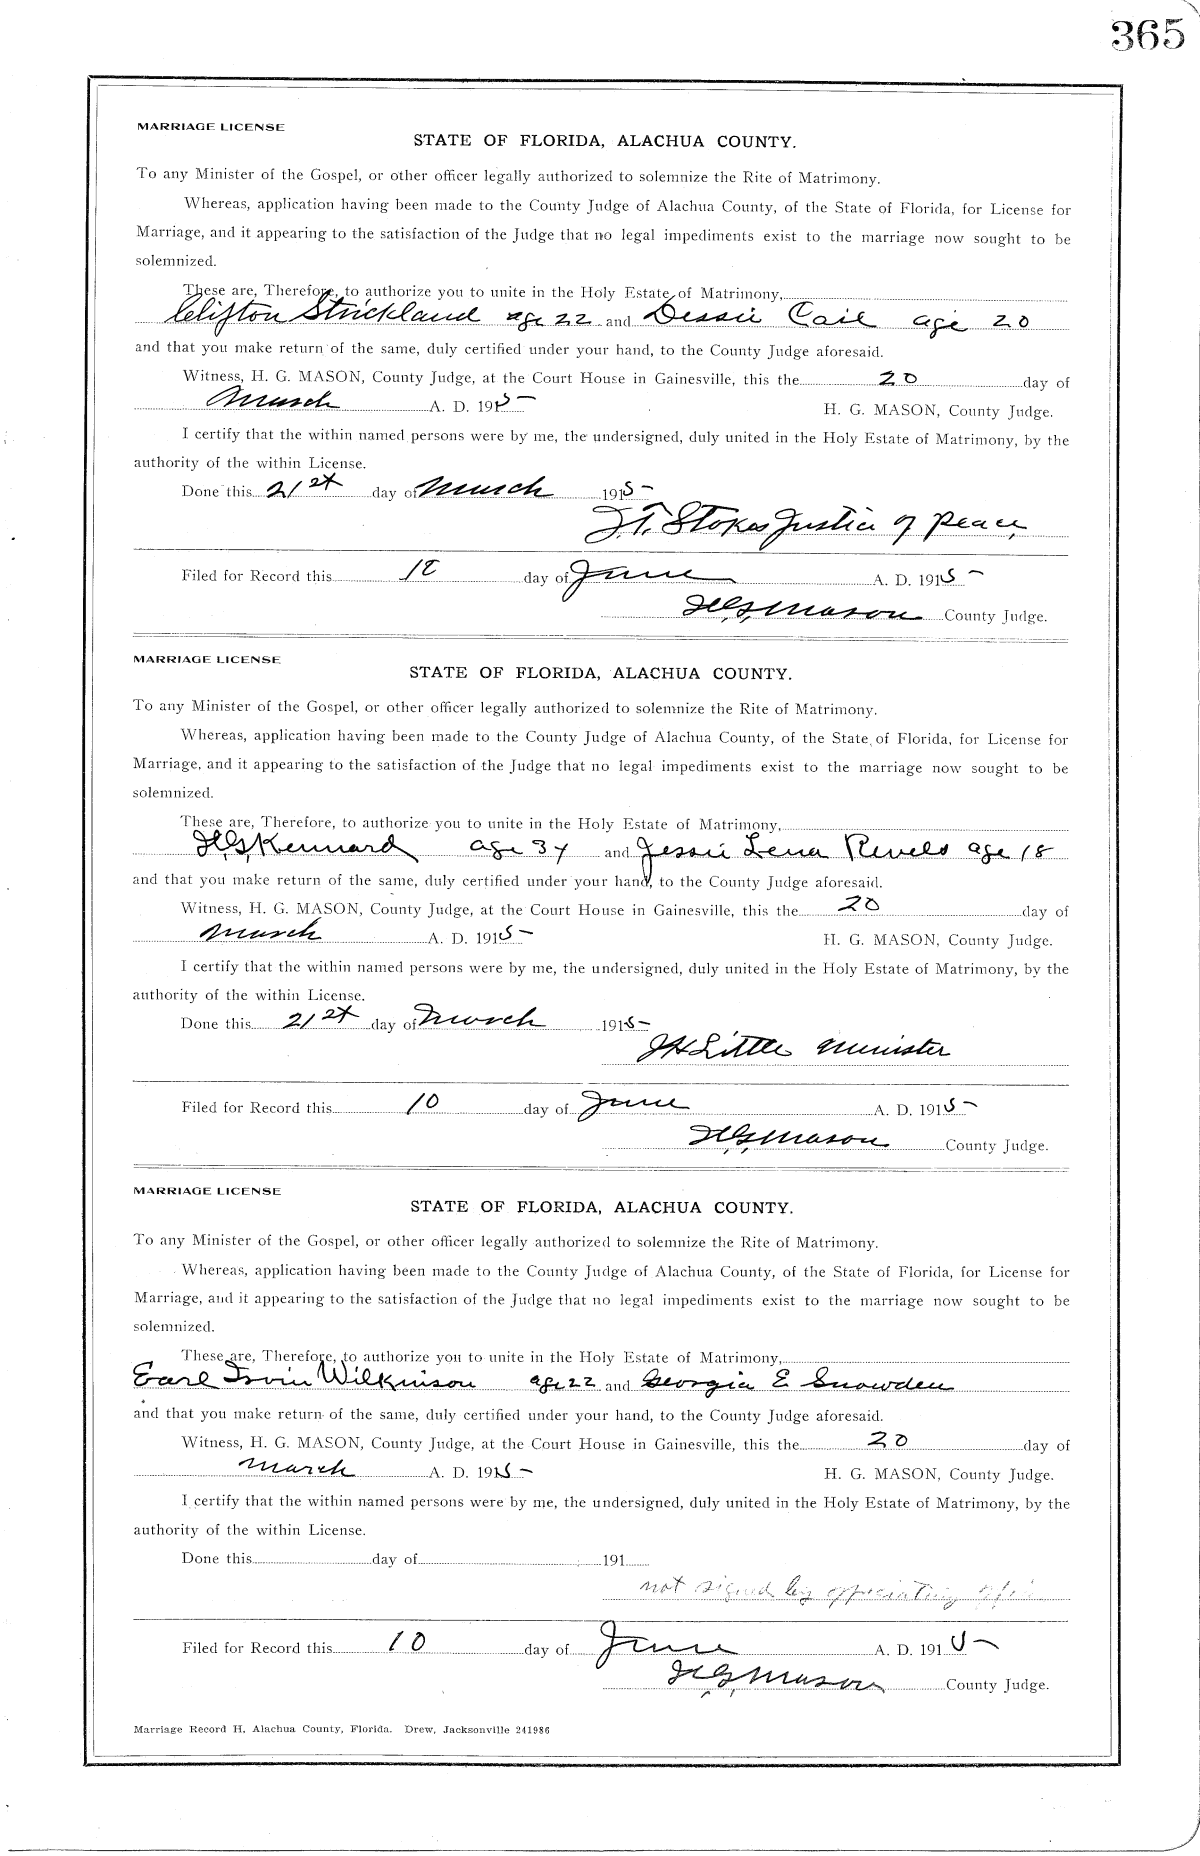 365
MARRIAGE LICENSE
STATE OF FLORIDA, ALACHUA COUNTY.
To any Minister of the Gospel, or other officer legally authorized to solemnize the Rite of Matrimony.
Whereas, application having been made to the County Judge of Alachua County, of the State of Florida, for License for
Marriage, and it appearing to the satisfaction of the Judge that no legal impediments exist to the marriage now sought to be
solemnized.
These are, Therefore, to authorize you to unite in the Holy Estate of Matrimony,
Clifton Strickland age 22 and Dessie Cail age 20
and that you make return of the same, duly certified under your hand, to the County Judge aforesaid.
Witness, H. G. MASON, County Judge, at the Court House in Gainesville, this the 20 day of
March A. D. 1915 H. G. MASON, County Judge.
I certify that the within named persons were by me, the undersigned, duly united in the Holy Estate of Matrimony, by the
authority of the within License.
Done this 21st day of March 1915
J.T. Stokes Justice of Peace
Filed for Record this day of June A. D. 1915
H.G. Mason County Judge.
MARRIAGE LICENSE
STATE OF FLORIDA, ALACHUA COUNTY.
To any Minister of the Gospel, or other officer legally authorized to solemnize the Rite of Matrimony.
Whereas, application having been made to the County Judge of Alachua County, of the State of Florida, for License for
Marriage, and it appearing to the satisfaction of the Judge that no legal impediments exist to the marriage now sought to be
solemnized.
These are, Therefore, to authorize you to unite in the Holy Estate of Matrimony,
H.G. Kennard age 34 and Jessie Lena Revels age 18
and that you make return of the same, duly certified under your hand, to the County Judge aforesaid.
Witness, H. G. MASON, County Judge, at the Court House in Gainesville, this the 20 day of
March A. D. 1915 H. G. MASON, County Judge.
I certify that the within named persons were by me, the undersigned, duly united in the Holy Estate of Matrimony, by the
authority of the within License.
Done this 21st day of March 1915
J H Little Minister
Filed for Record this 10 day of June A. D. 1915
H.G. Mason County Judge.
MARRIAGE LICENSE
STATE OF FLORIDA, ALACHUA COUNTY.
To any Minister of the Gospel, or other officer legally authorized to solemnize the Rite of Matrimony.
Whereas, application having been made to the County Judge of Alachua County, of the State of Florida, for License for
Marriage, and it appearing to the satisfaction of the Judge that no legal impediments exist to the marriage now sought to be
solemnized.
These are, Therefore, to authorize you to unite in the Holy Estate of Matrimony,
Earl Irvin Wilkinson age 22 and Georgia E Snowden
and that you make return of the same, duly certified under your hand, to the County Judge aforesaid.
Witness, H. G. MASON, County Judge, at the Court House in Gainesville, this the 20 day of
March A. D. 1915 H. G. MASON, County Judge.
I certify that the within named persons were by me, the undersigned, duly united in the Holy Estate of Matrimony, by the
authority of the within License.
Done this day of 191
not signed by officiating
Filed for Record this 10 day of June A. D. 1915
H.G. Mason County Judge.
Marriage Record H. Alachua County, Florida. Drew, Jacksonville 241986